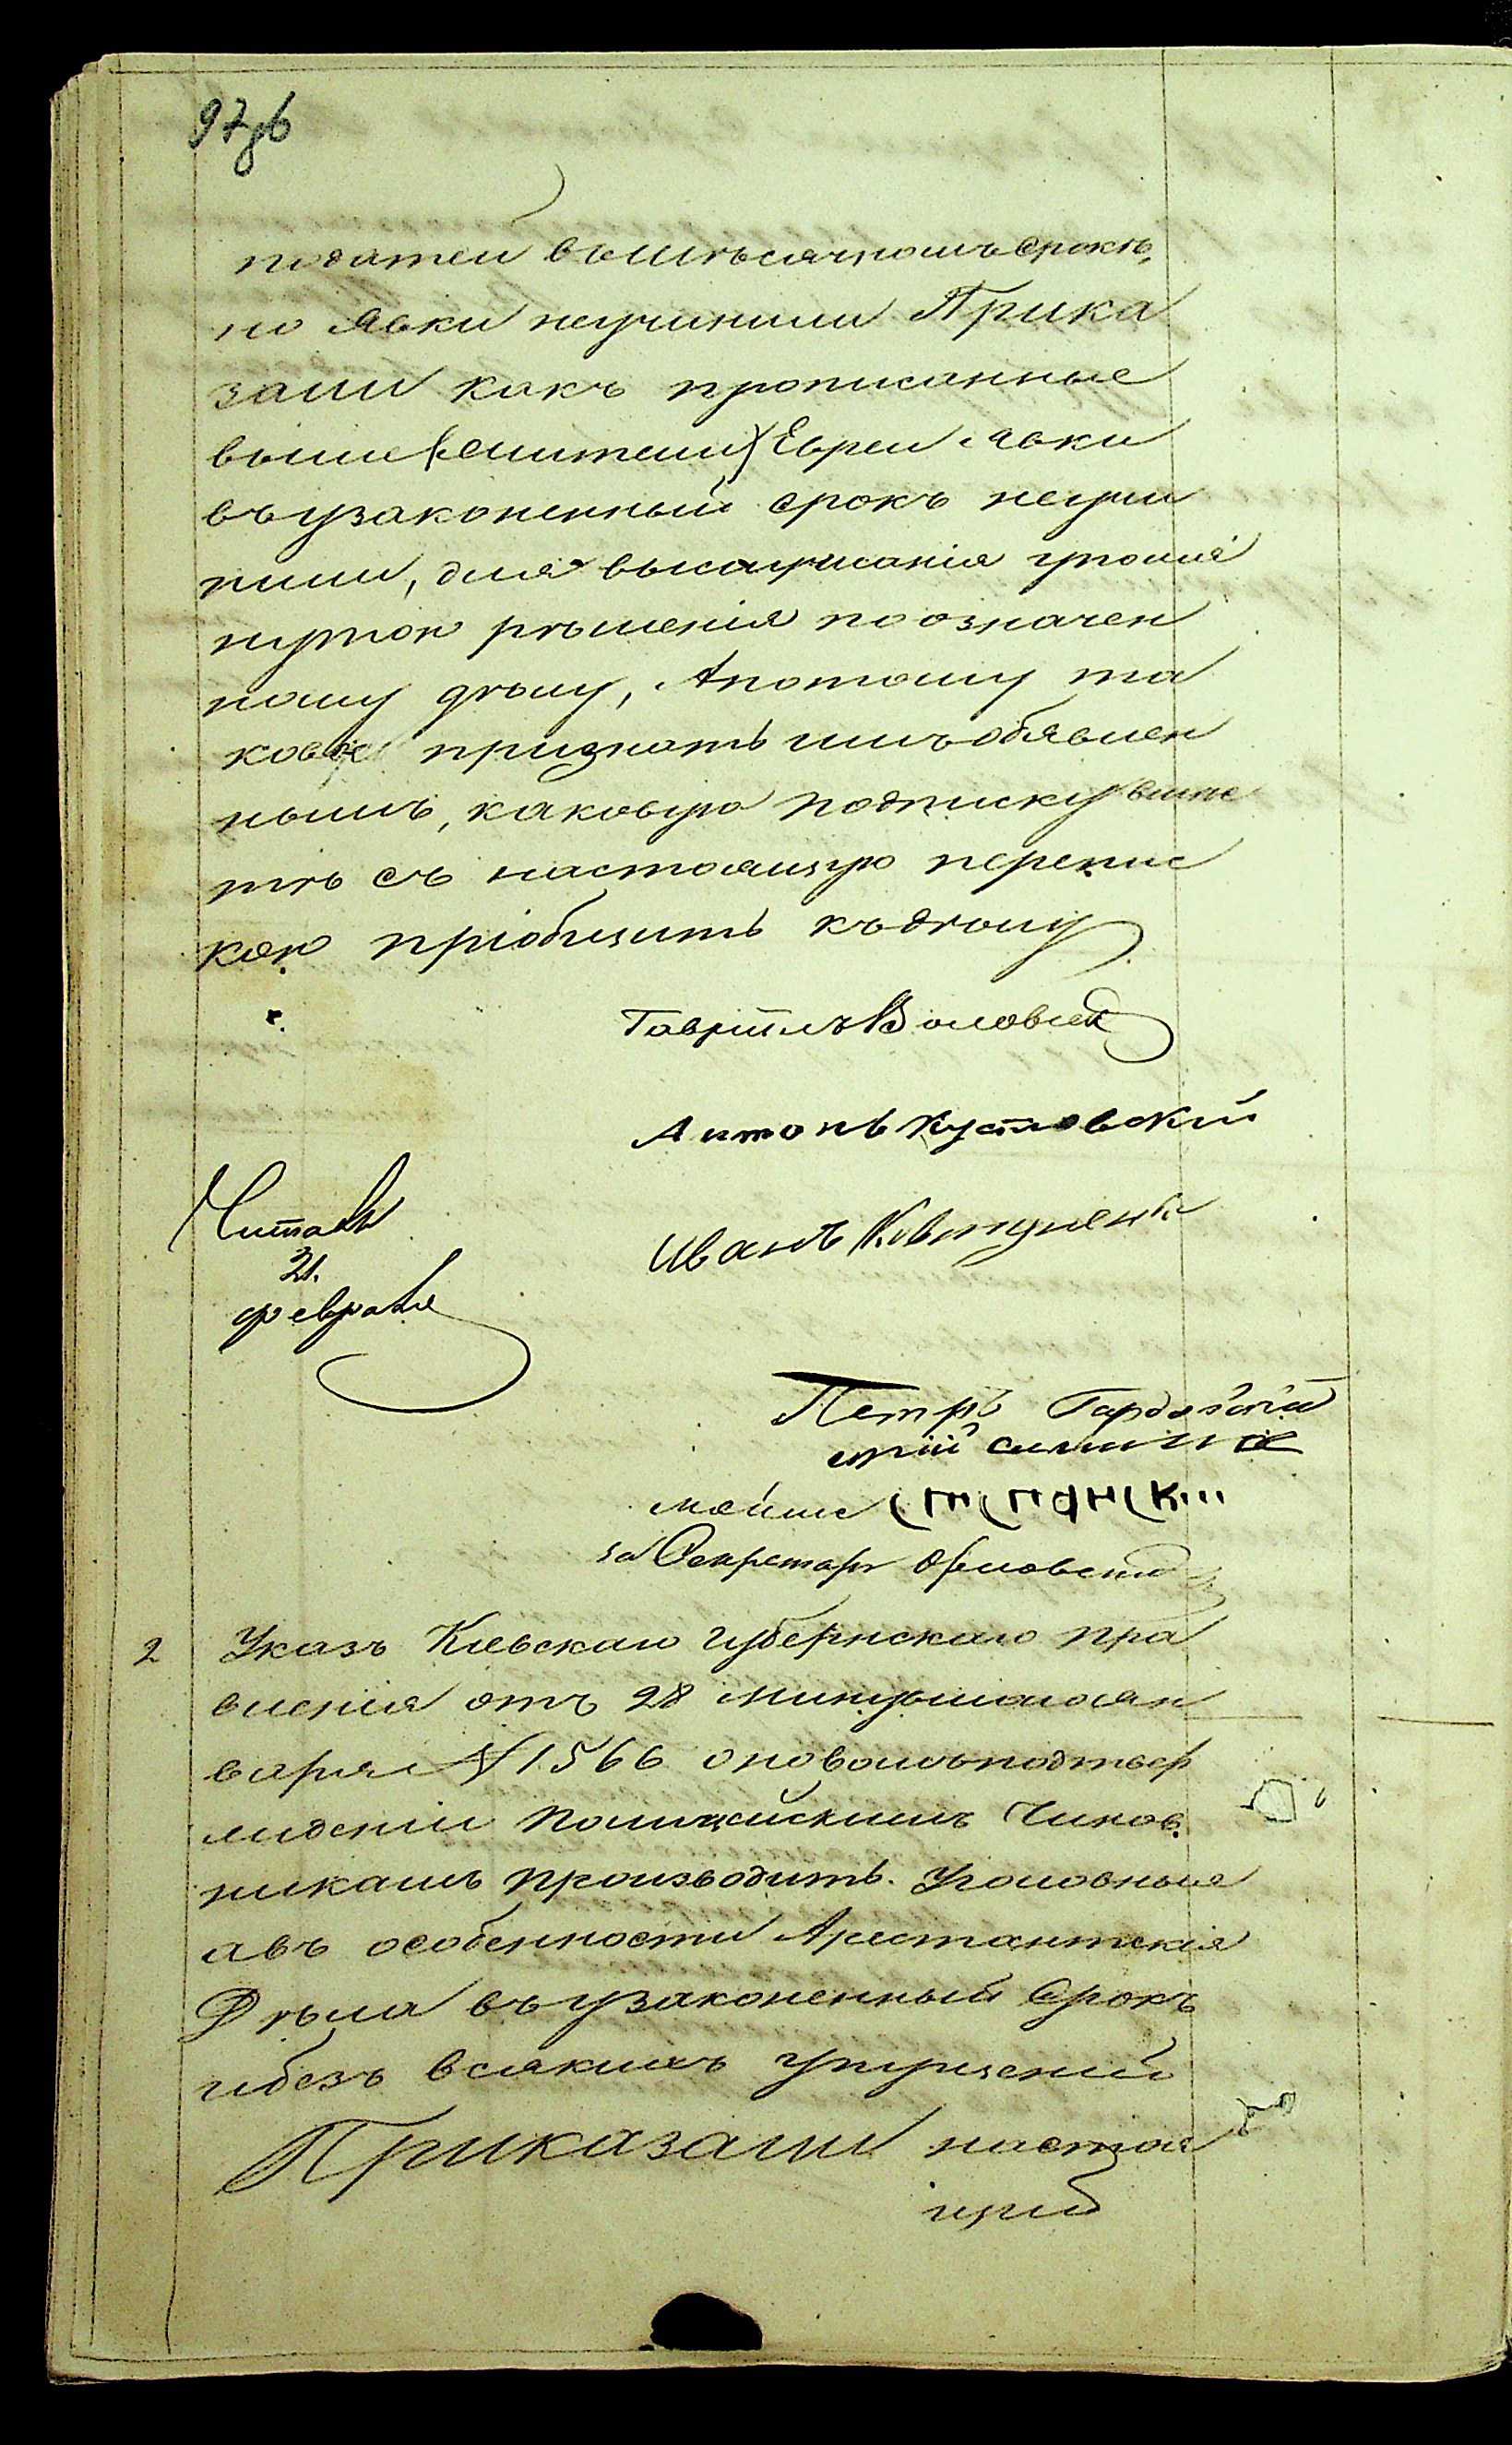 97об
податей вшѣсячномъ срокѣ,
но явки неучинили Прика
зали какъ прописанные
выше Евреи явки
въ узаконенный срокъ неучи
нили, для выслушанія упомя
нутою рѣшенія по означен
ному дѣлу, Апотому та
ковое признать имъ обявлен
нымъ, каковую подписку вмѣс
тѣ съ настоящую перепис
кою пріобщить къ дѣлу
Гавріилъ
Антонъ Кустовский
Иванъ
Читалъ
21.
февраля
Петръ
мойше
за Секретаря Орловский
2 Указъ Кіевскаго губернскаго пра
вленія отъ 28 минувшаго ян
варя № 1566 о новомъ подтвер
жденіи Полицейскимъ Чинов
никамъ производить Уголовныя
авъ особенности Арестантскія
Дѣла въ узаконенный Срокъ
ибезъ всякихъ упущеній
Приказали настоя
щій